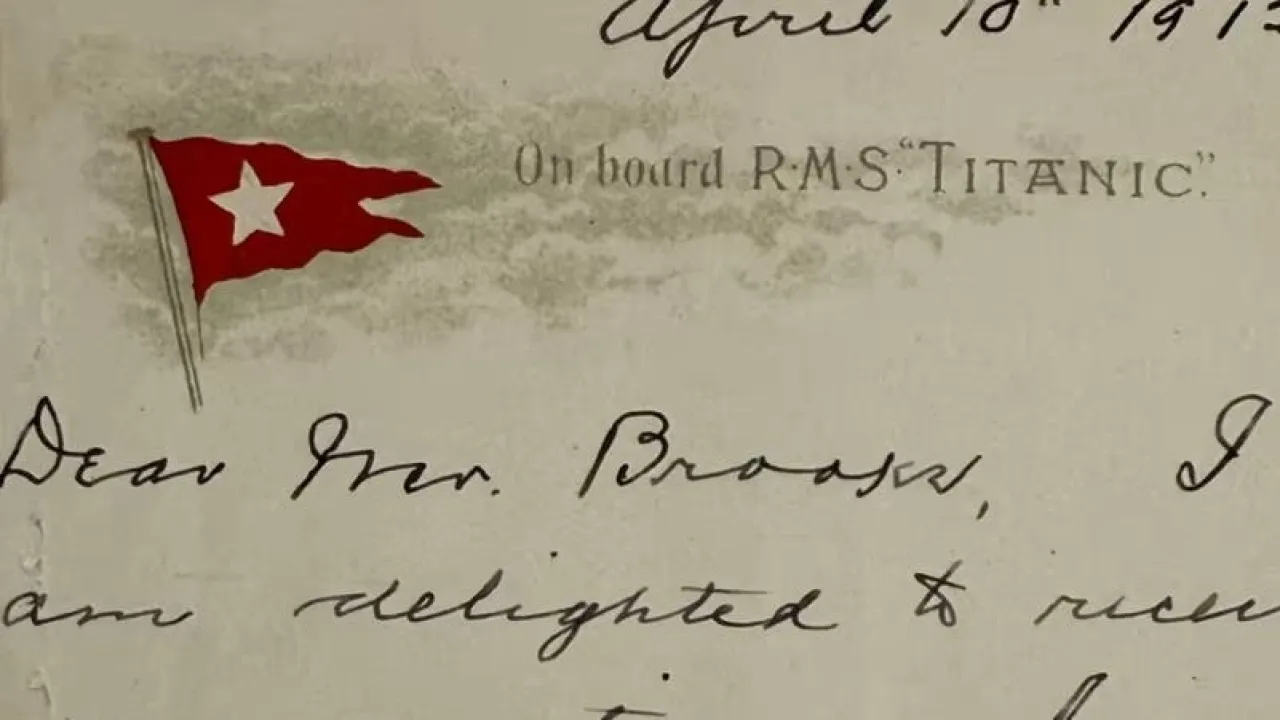 April 10" 191
On board R·M·S· "TITANIC".
Dear Mr. Brooks, I
am delighted to